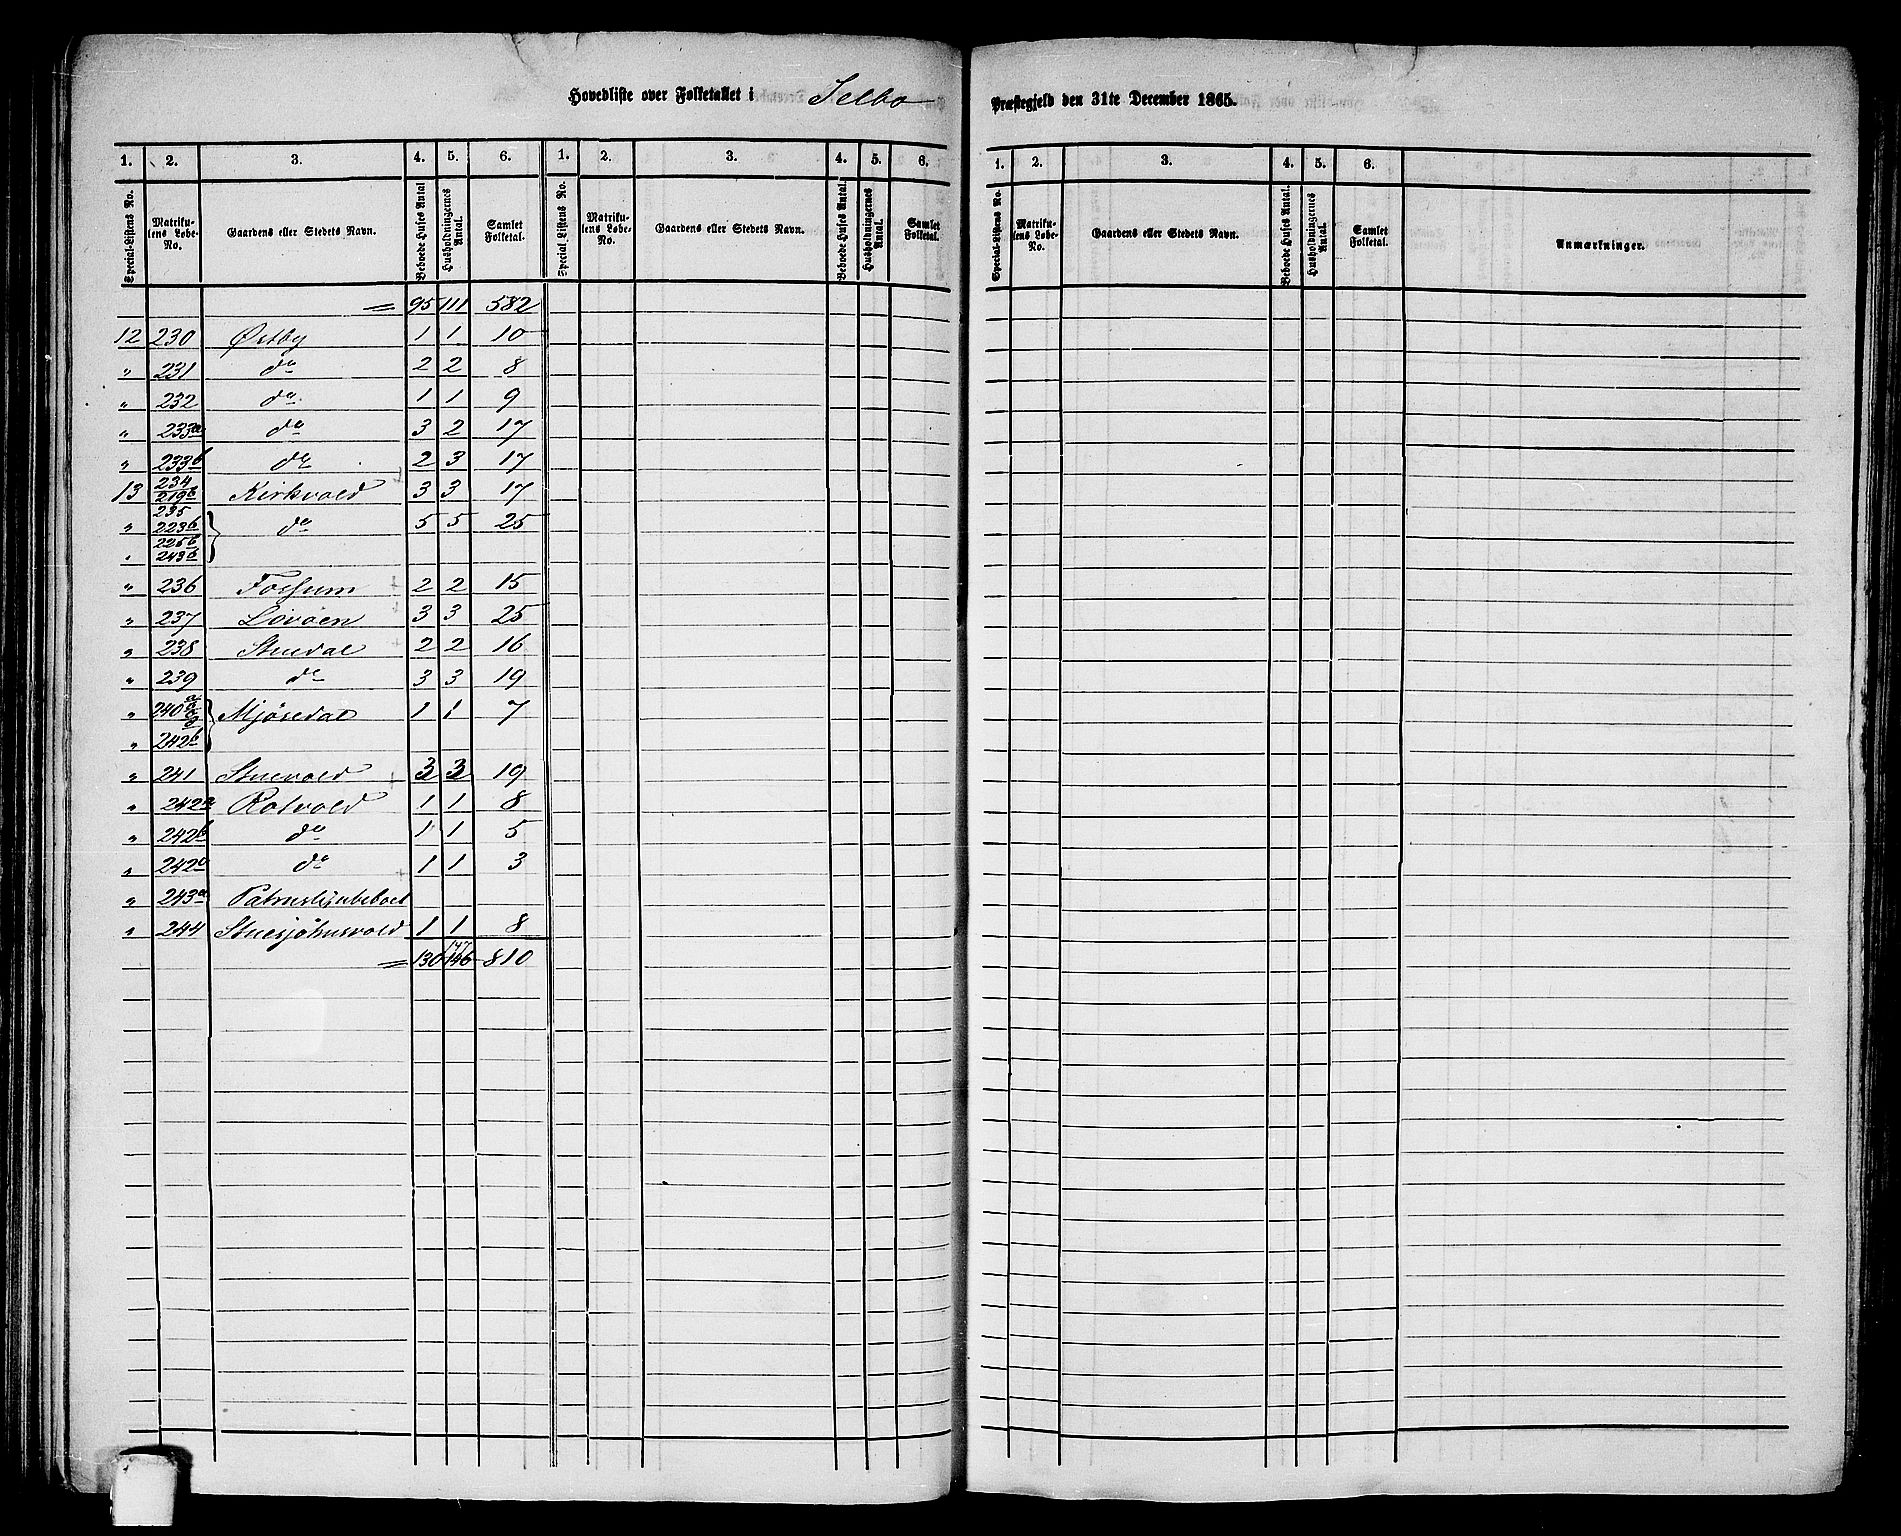 Hovedliste over Folketallet i Selbo Præstegjeld den 31te December 1865.
1. 2. 3. 4. 5. 6. 1. 2. 3. 4. 5. 6.
Special-Listens No. Matrikulens Løbe-No. Gaardens eller Stedets Navn. Beboede Huses Antal Husholdningernes Antal. Samlet Folketal. Special Listens No. Matrikulens Løbe-No. Gaardens eller Stedets Navn. Beboede Huses Antal. Husholdningernes Antal. Samlet Folketal.
95 111 582
12 230 Østby 1 1 10
" 231 do 2 2 8
" 232 do 1 1 9
" 233a do 3 2 17
" 233b do 2 3 17
13 234 219b Kirkvold 3 3 17
" 235 223b do 5 5 25
" 225b 243b
" 236 Fossum 2 2 15
" 237 Løvøen 3 3 25
" 238 Stuedal 2 2 16
" 239 do 3 3 19
" 240 Mjøsedal 1 1 7
" 242b
" 241 Stuevold 3 3 19
" 242a Rotvold 1 1 8
" 242b do 1 1 5
" 242a do 1 1 3
" 243a
" 244 Stuesjøhusvold 1 1 8
147
130 146 810
1. 2. 3. 4. 5. 6.
Special-Listens No. Matrikulens Løbe-No. Gaardens eller Stedets Navn. Beboede Huses Antal. Husholdningernes Antal. Samlet Folketal. Anmærkninger.